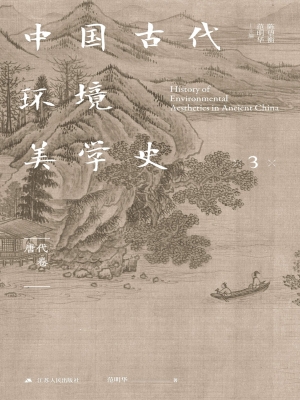 中国古代
环境
美学史
History of
Environmental
Aesthetics in Ancient China
陈望衡
范明华
主编
3
唐代卷
江苏人民出版社
范明华 著